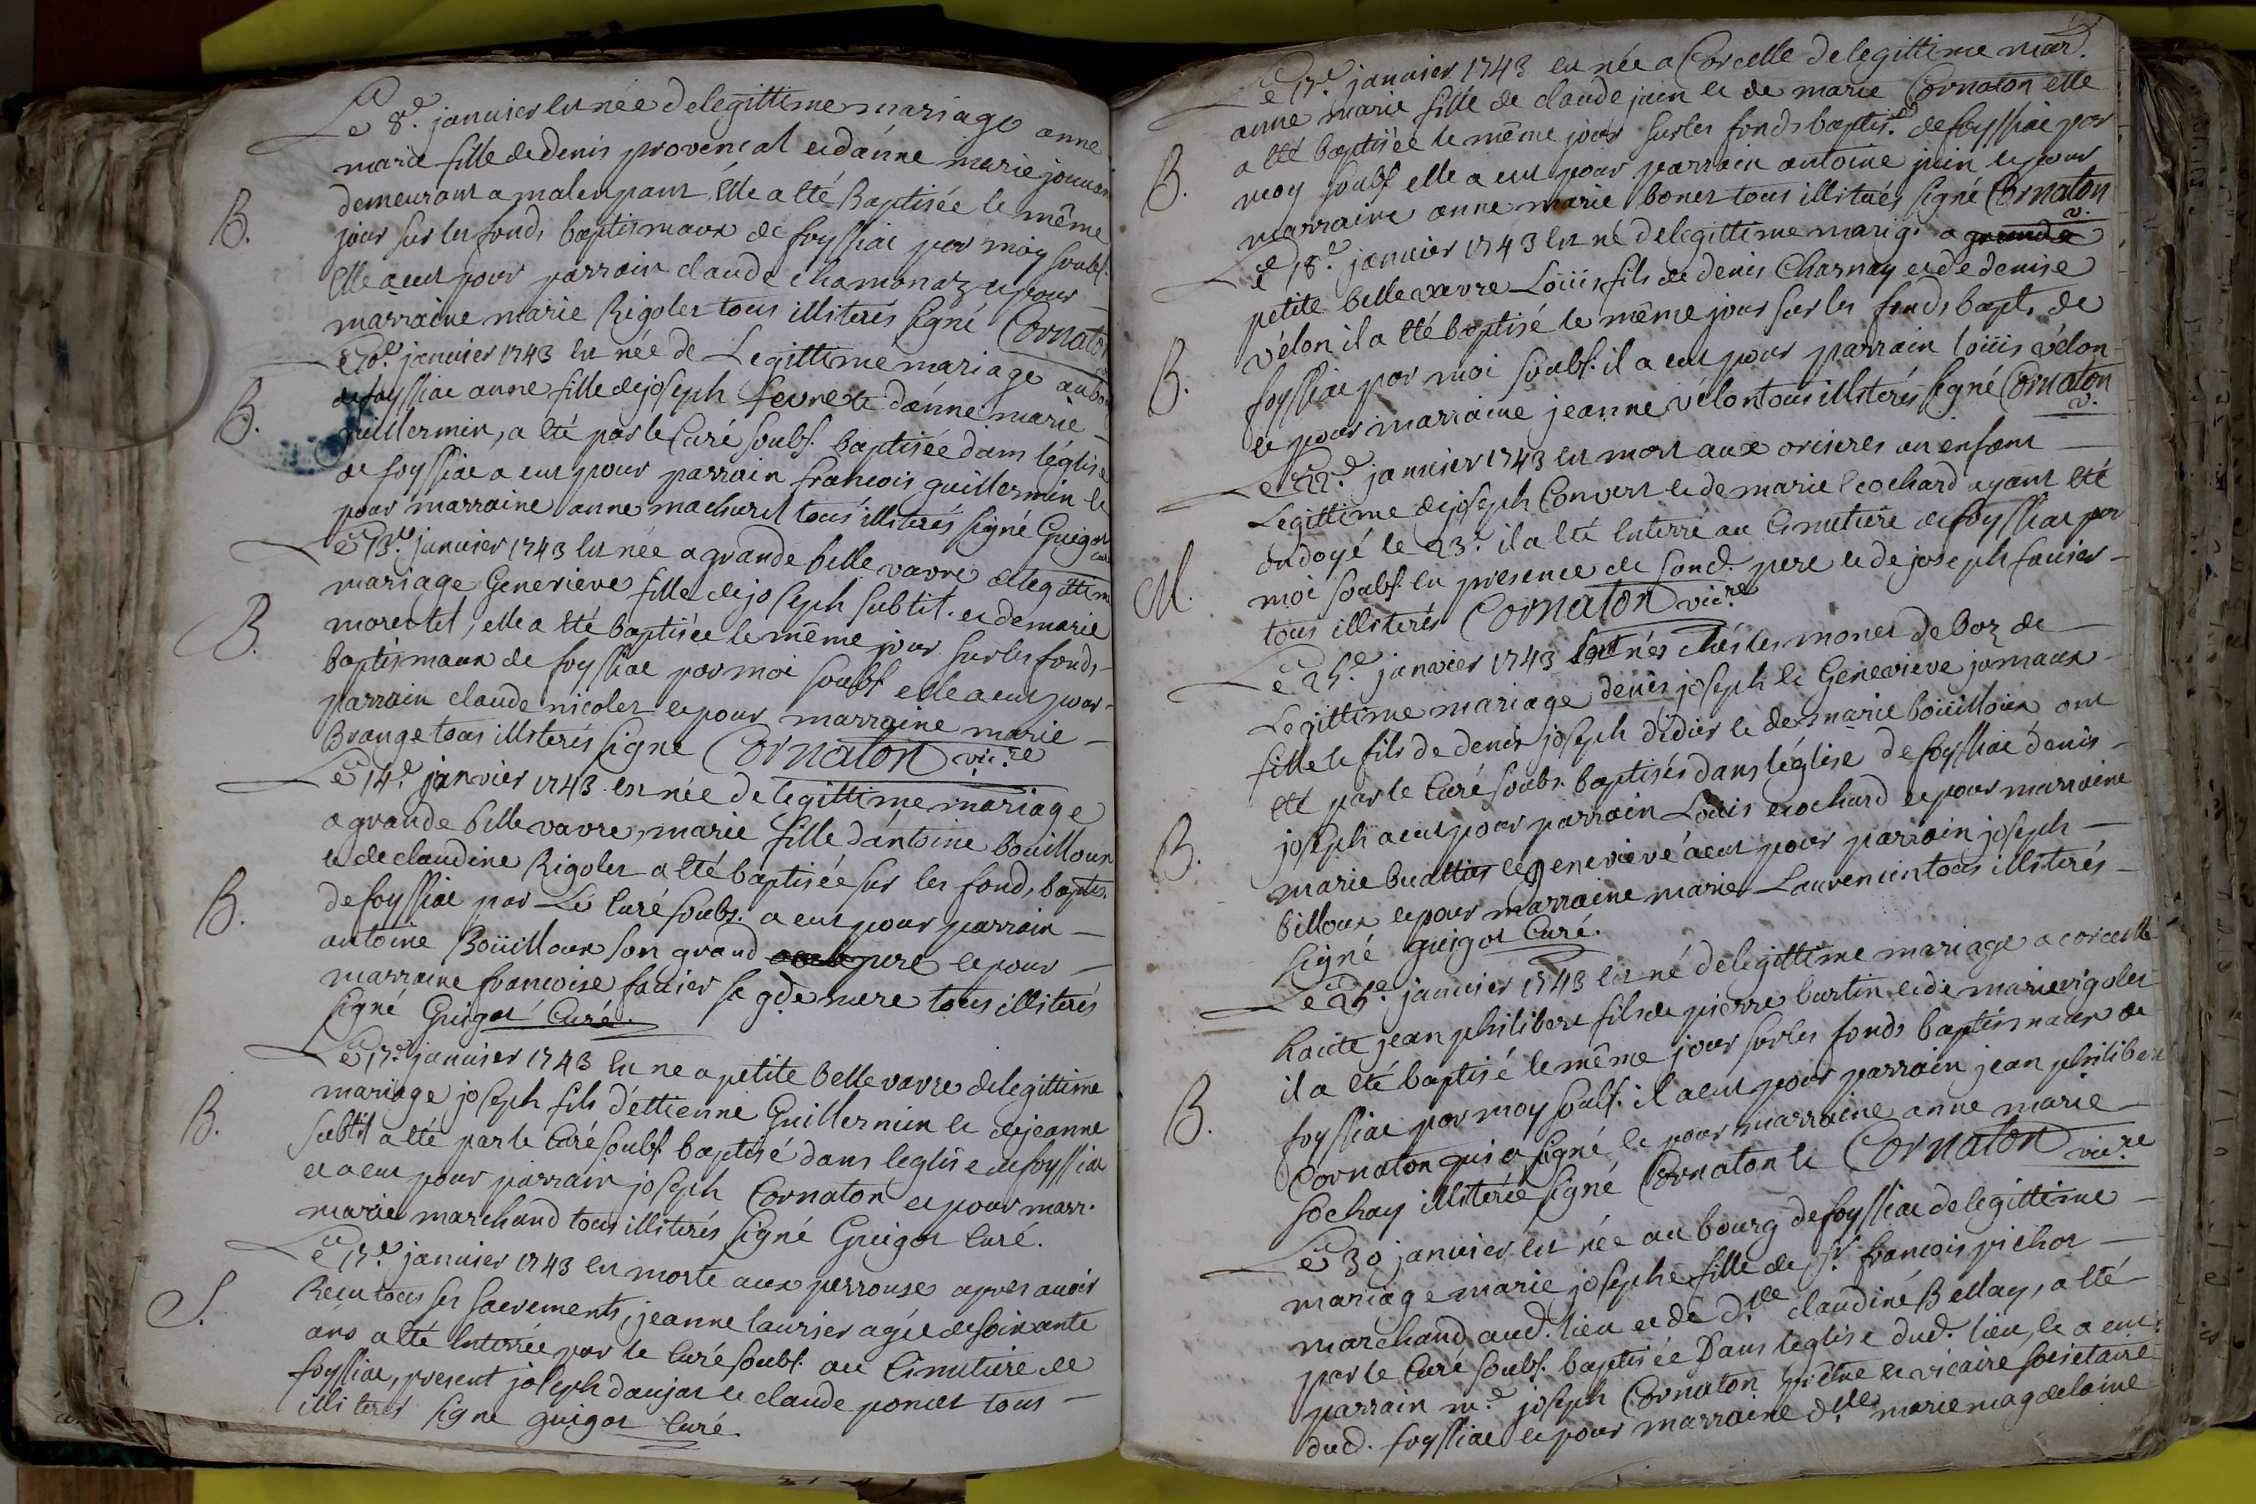 Le 8.e janvier est née de legittime mariage anne
marie fille de denis provencal et d'anne marie
demeurant a malenpant Elle a été Baptisée le même
B. jour sur les fonds baptismaux de foyssiac par moy soubs.
Elle a eut pour parrain claude chamonaz et pour
marraine marie Rigolet tous illiterés signé Cornaton
Le 10.e janvier 1743 est née de Legittime mariage au bou
B. de foyssiac anne fille de joseph fevre et d'anne marie
guillermin, a été par le Curé soubs. baptisée dans l'église
de foyssiac a eut pour parrain francois guillermin et
pour marraine anne machuret tous illiterés signé Guigot
Le 13.e janvier 1743 est née a grande belle vavre de legittim
mariage Genevieve fille de joseph subtil. et de marie
B. morestel, elle a été baptisée le même jour sur les fonds
baptismaux de foyssiac par moi soubs. elle a eut pour
parrain claude nicolet et pour marraine marie
Brange tous illiterés signe Cornaton vic.re
Le 14.e janvier 1743 est née de legittime mariage
a grande belle vavre, marie fille d'antoine boüilloux
et de claudine Rigolet a été baptisée sur les fonds baptis.
B. de foyssiac par Le Curé soubs. a eut pour parrain
antoine Boüilloux son grand pere et pour
marraine francoise favier sa gde mere tous illiterés
signé Guigot Curé.
Le 17.e janvier 1743 est ne a petite belle vavre de legittime
mariage joseph fils d'ettienne Guillermin et de jeanne
B. subtil a été par le Curé soubs. baptisé dans l'eglise de foyssiac
et a eut pour parrain joseph Cornaton et pour marr.
marie marchand tous illiterés signé Guigot Curé.
Le 17.e janvier 1743 est morte aux perrouse apres avoir
S. Recu tous ses sacrements, jeanne laurier agée de soixante
ans a été Enterrée par le Curé soubs. au Cimetiere de
foyssiac, present joseph daujat et claude poncet tous
illiterés signe guigot Curé.
Le 17.e janvier 1743 est née a Corcelle de legittime mar.
anne marie fille de claude juin et de marie Cornaton elle
a été baptisée le même jour sur les fonds baptis. de foyssiac par
B. moy soubs. elle a eut pour parrain antoine juin et pour
marraine anne marie bonet tous illiterés signé Cornaton v.
Le 18.e janvier 1743 est né de legittime marig. a grande
petite belle vavre Loüis fils de denis Charnay et de denise
vélon il a été baptisé le même jour sur les fonds bapt. de
B. foyssiac par moi soubs. il a eut pour parrain loüis vélon
et pour marraine jeanne vélon tous illiterés signé Cornaton v.
Le 22.e janvier 1743 est mort aux orcieres un enfant
Legittime de joseph Convert et de marie Ecochard ayant été
ondoyé le 23. il a été Enterré au Cimetiere de foyssiac par
M. moi soubs. en presence de sond. pere et de joseph favier
tous illiterés Cornaton vic.re
Le 25.e janvier 1743 sont nés chés les monet de boz de
Legittime mariage denis joseph et Genevieve jumaux
fille et fils de denis joseph didier et de marie boüilloux ont
été par le Curé soubs. baptisés dans l'église de foyssiac denis
B. joseph a eut pour parrain Loüis ecochard et pour marraine
marie buattier et genevieve a eut pour parrain joseph
billoux et pour marraine marie Laurencin tous illiterés
signé guigot Curé.
Le 25.e janvier 1743 est né de legittime mariage a corcelle
haute jean philibert fils de pierre burtin et de marie rigolet
il a été baptisé le même jour sur les fonds baptismaux de
B. foyssiac par moy soubs. il a eut pour parrain jean philibert
Cornaton qui a signé et pour marraine anne marie
sochay illiterée signé Cornaton et Cornaton vic.re
Le 30 janvier est née au bourg de foyssiac de legittime
mariage marie josephe fille de Sr. francois pichot
marchand aud. lieu et de d.lle claudine Bellay, a été
par le Curé soubs. baptisée Dans l'eglise dud. lieu, et a eut
parrain m.e joseph Cornaton prêtre et vicaire societaire
dud. foyssiac et pour marraine d.lle marie magdelaine